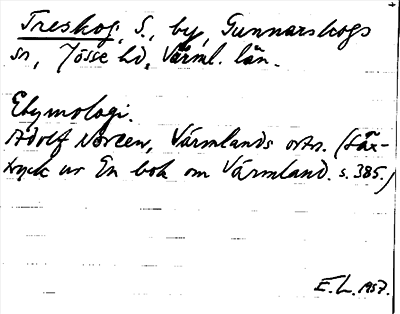 Treskog, S., by, Gunnarskogs
sn, Jösse hd, Värml. län.
Etymologi.
Adolf Noreen, Värmlands ortn. (Sär-
tryck ur En bok om Värmland. s. 385.)
E. L. 1957.